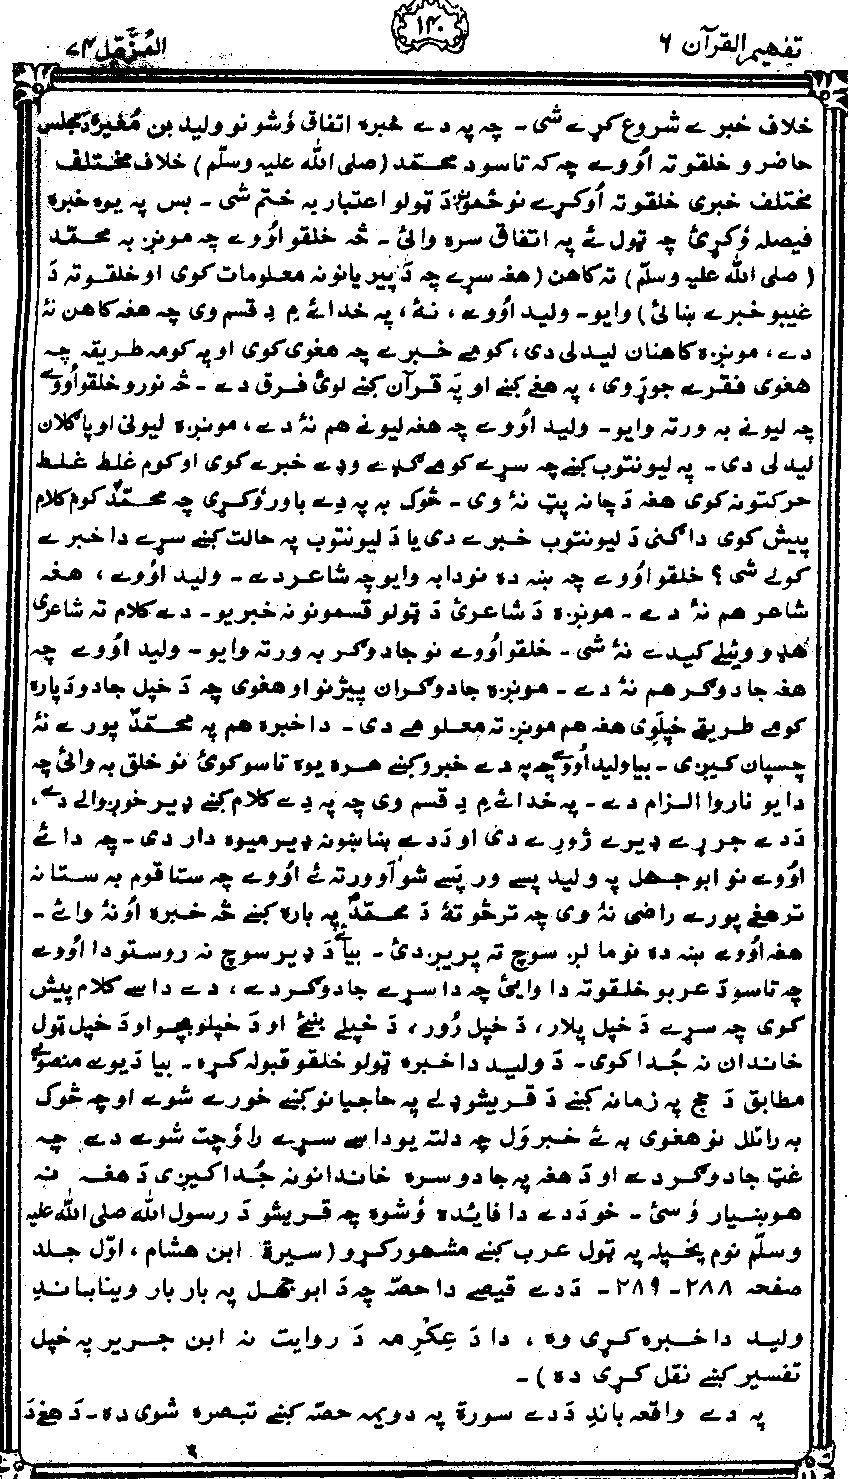 تفهیم القرآن ۶
۱۴۰
المُزَّمِّل ۷۴
خلاف خبرے شروع کړے شی - چه په دے خبره اتفاق وُشو نو ولید بن مُغیرہ دَ مجلس
حاضرو خلقو ته اُووے چه که تاسو دَ محمّد (صلی اللّٰه علیه وسلّم) خلاف مختلف
مختلف خبری خلقو ته اُوکړے نو خمونږ دَ ټولو اعتبار به ختم شی - بس په یوه خبره
فیصله وُکړئ چه ټول ئے په اتفاق سره وائ - څه خلقو اُووے چه مونږ به محمّد
(صلی اللّٰه علیه وسلّم) ته کاهن (هغه سرے چه دَ پیریانو نه معلومات کوی او خلقو ته دَ
غیبو خبرے ښائی) وایو - ولید اُووے ، نهٔ ، په خدائے مِ دِ قسم وی چه هغه کاهن نهٔ
دے، مونږه کاهنان لیدلی دی، کومے خبرے چه هغوی کوی او په کومه طریقه چه
هغوی فقرے جوړوی ، په هغے کښے او په قرآن کښے لوئ فرق دے - څه نورو خلقو اُووے
چه لیونے به ورته وایو - ولید اُووے چه هغه لیونے هم نهٔ دے، مونږه لیونی او پاګلان
لیدلی دی - په لیونتوب کښے چه سرے کومے ګډے وډے خبرے کوی او کوم غلط غلط
حرکتونه کوی هغه دَ چا نه پټ نهٔ وی - څوک به په دِے باور وُکړی چه محمّدؐ کوم کلام
پیش کوی دا ګنی دَ لیونتوب خبرے دی یا دَ لیونتوب په حالت کښے سرے دا خبرے
کولے شی؟ خلقو اُووے چه ښه ده نو دا به وایو چه شاعر دے - ولید اُووے ، هغه
شاعر هم نهٔ دے - مونږه دَ شاعرئ دَ ټولو قسمونو نه خبر یو - دے کلام ته شاعری
هډو وئیلے کیدے نهٔ شی - خلقو اُووے نو جادوګر به ورته وایو - ولید اُووے چه
هغه جادوګر هم نهٔ دے - مونږه جادوګران پیژنو او هغوی چه دَ خپل جادو دَ پاره
کومے طریقے خپلوی هغه هم مونږ ته معلومے دی - دا خبره هم په محمّدؐ پورے نهٔ
چسپان کیږی - بیا ولید اُووے چه په دے خبرو کښے هره یوه تاسو کوئ نو خلق به وائ چه
دا یو ناروا الزام دے - په خدائے مِ دِ قسم وی چه په دِے کلام کښے ډیر خوږوالے دے،
دَ دے جررے ډیرے ژورے دی او دَ دے ښاښونه ډیر میوه دار دی - چه دا ئے
اُووے نو ابوجهل په ولید پسے ورپسے شو او ورته ئے اُووے چه ستا قوم به ستا نه
تر هغے پورے راضی نهٔ وی چه تر څو تهٔ دَ محمّدؐ په باره کښے څه خبره اُو نهٔ وائے -
هغه اُووے ښه ده نو ما لږ سوچ ته پریږدئ - بیا ئے دَ ډیر سوچ نه روستو دا اُووے
چه تاسو دَ عربو خلقو ته دا وایئ چه دا سرے جادوګر دے ، دے داسے کلام پیش
کوی چه سرے دَ خپل پلار، دَ خپل رُور، دَ خپلے ښځے او دَ خپلو بچو او دَ خپل ټول
خاندان نه جُدا کوی - دَ ولید دا خبره ټولو خلقو قبوله کړه - بیا دَ یوے منصوبے
مطابق دَ حج په زمانه کښے دَ قریشو ډلے په حاجیانو کښے خورے شوے او چه څوک
به راتلل نو هغوی به ئے خبرول چه دلته یو داسے سرے راوُچت شوے دے چه
غټ جادوګر دے او دَ هغه په جادو سره خاندانونه جُدا کیږی دَ هغه نه
هوښیار وُسئ - خو دَ دے دا فائده وُشوه چه قریشو دَ رسول اللّٰه صلی اللّٰه علیه
وسلّم نوم پخپله په ټول عرب کښے مشهور کړو (سیرة ابن هشام ، اوّل جلد
صفحه ۲۸۸ - ۲۸۹ - دَ دے قیصے دا حصّه چه دَ ابوجهل په بار بار وینا باندِ
ولید دا خبره کړی وه ، دا دَ عِکْرِمه دَ روایت نه ابن جریر په خپل
تفسیر کښے نقل کړی ده) -
په دے واقعه باندِ دَ دے سورة په دویمه حصّه کښے تبصره شوی ده - دَ هغے دَ